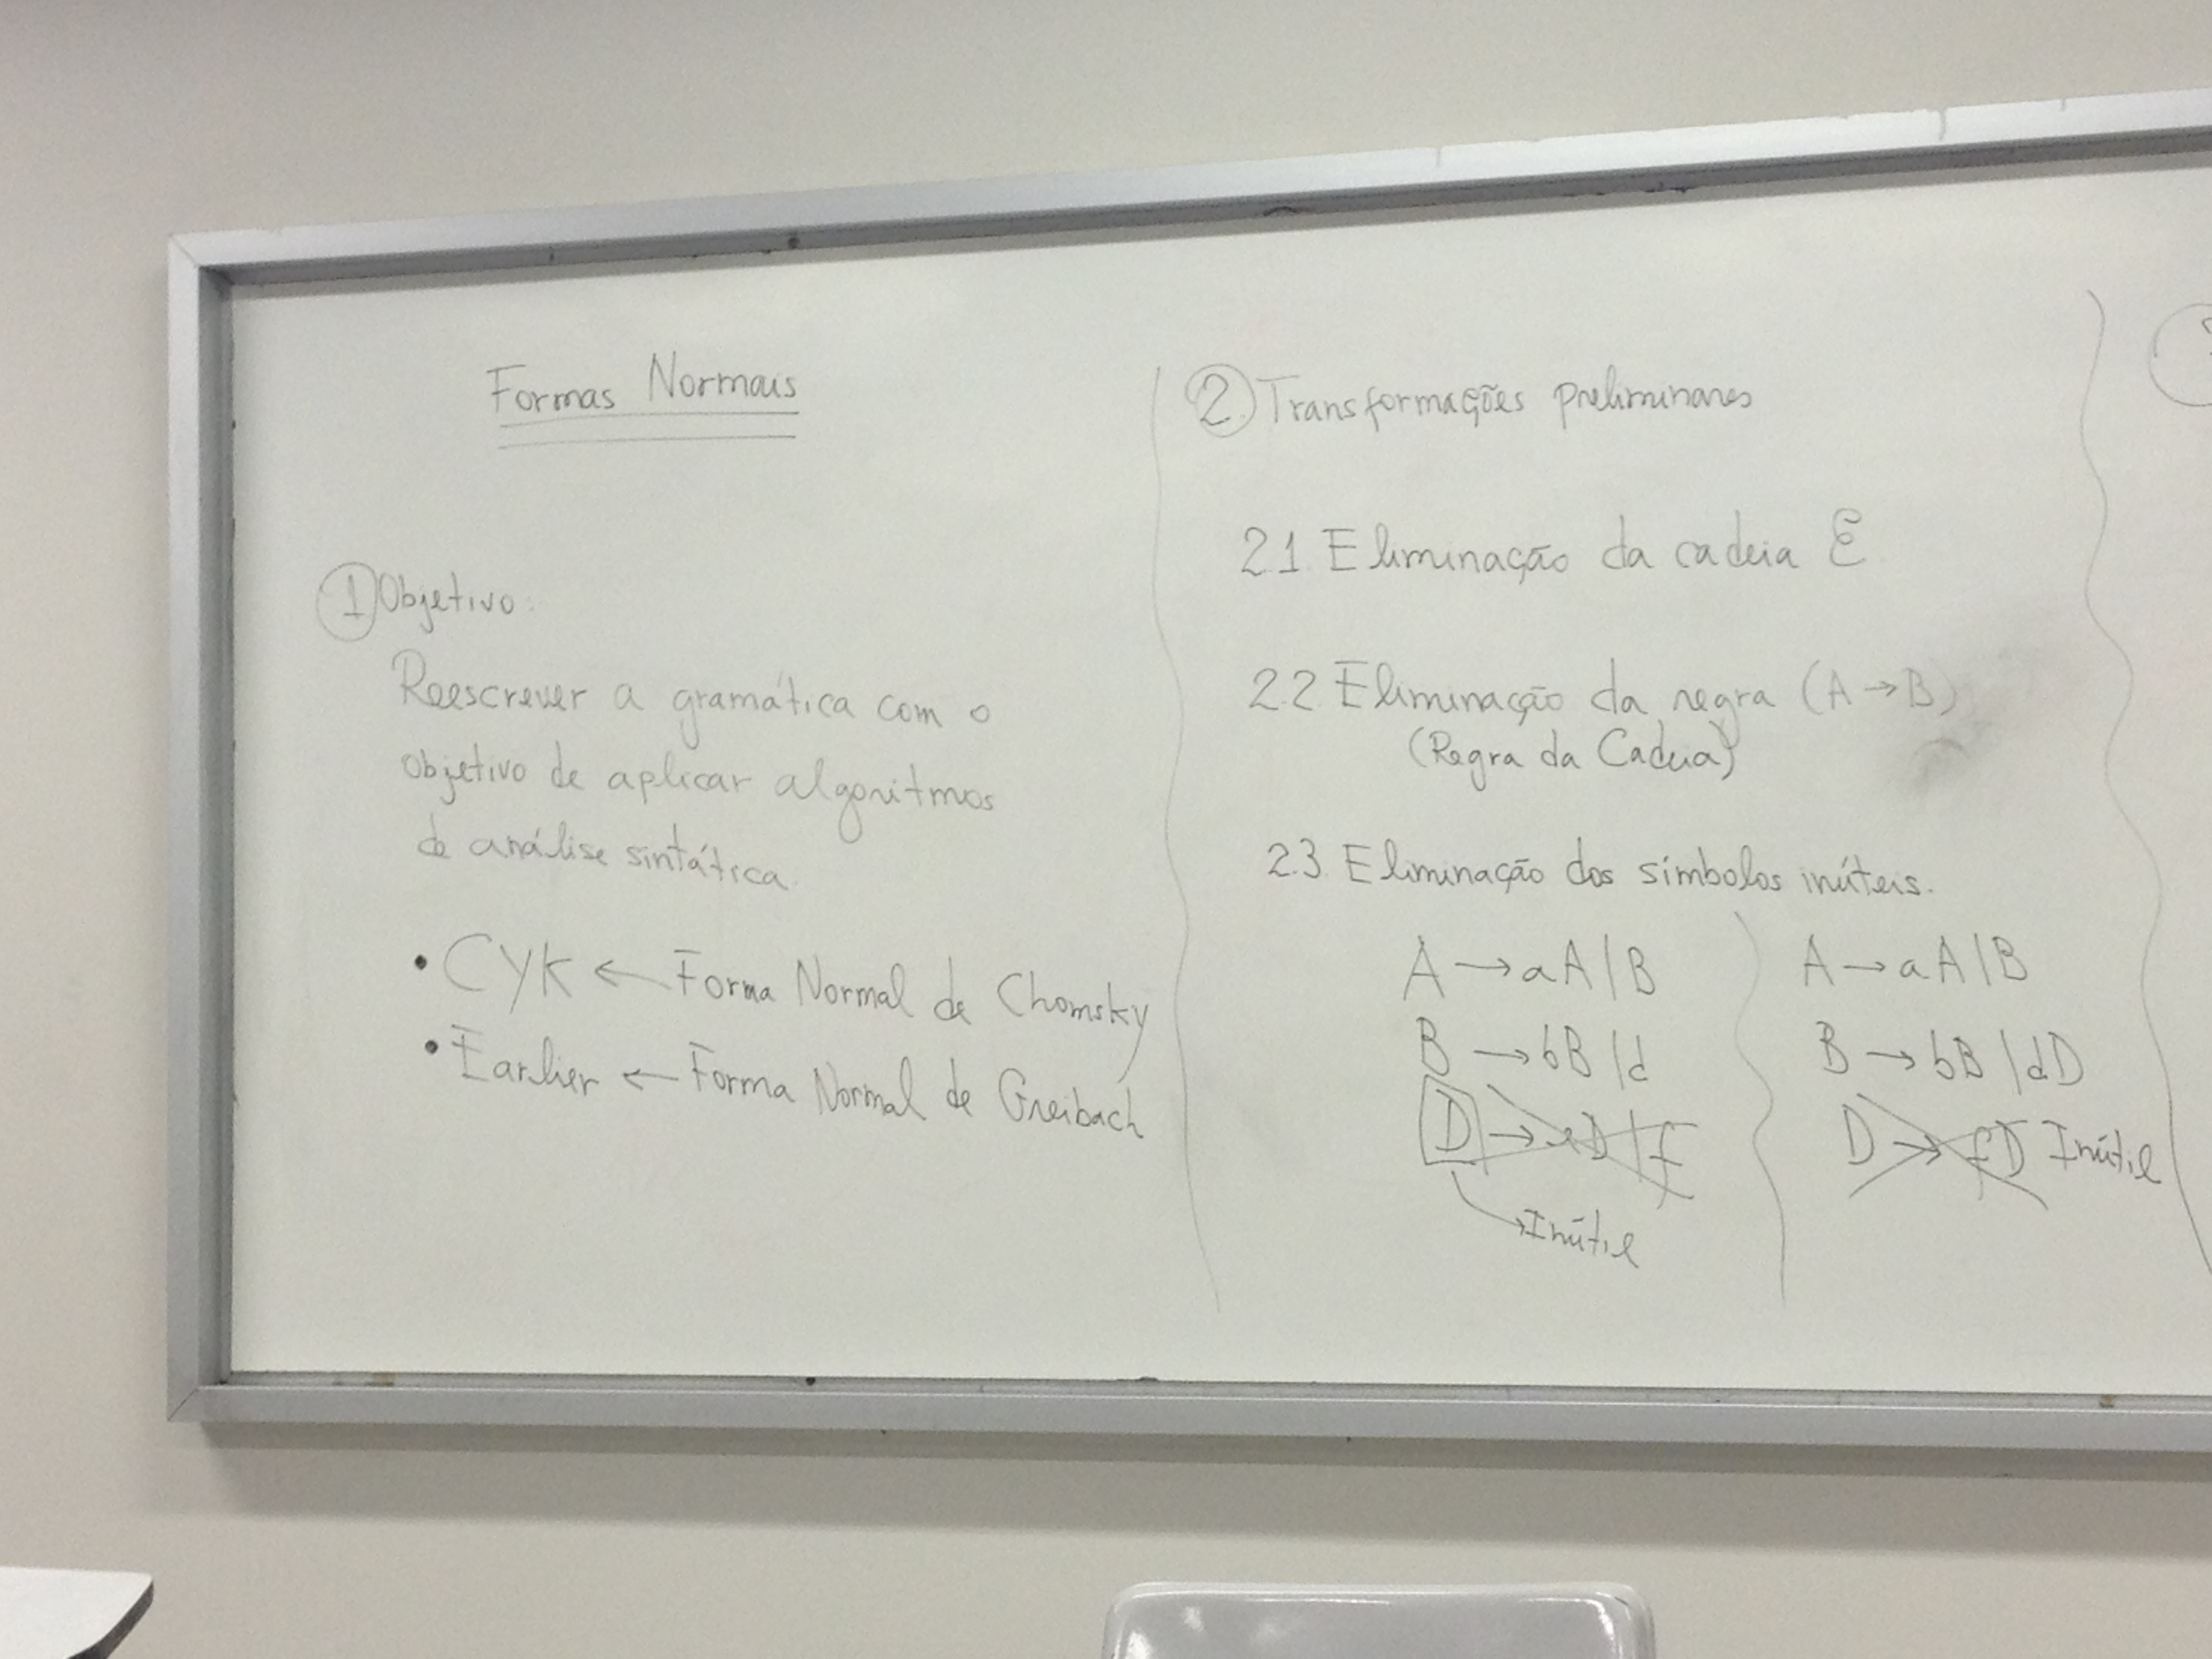 Formas Normais
1 Objetivo:
Reescrever a gramática com o
objetivo de aplicar algoritmos
de análise sintática.
• CYK ← Forma Normal de Chomsky
• Earlier ← Forma Normal de Greibach
2 Transformações preliminares
2.1. Eliminação da cadeia ε
2.2 Eliminação da regra (A → B)
(Regra da Cadeia)
2.3. Eliminação dos símbolos inúteis.
A → aA | B
B → bB | d
D → eD | f
Inútil
A → aA | B
B → bB | dD
D → fD Inútil